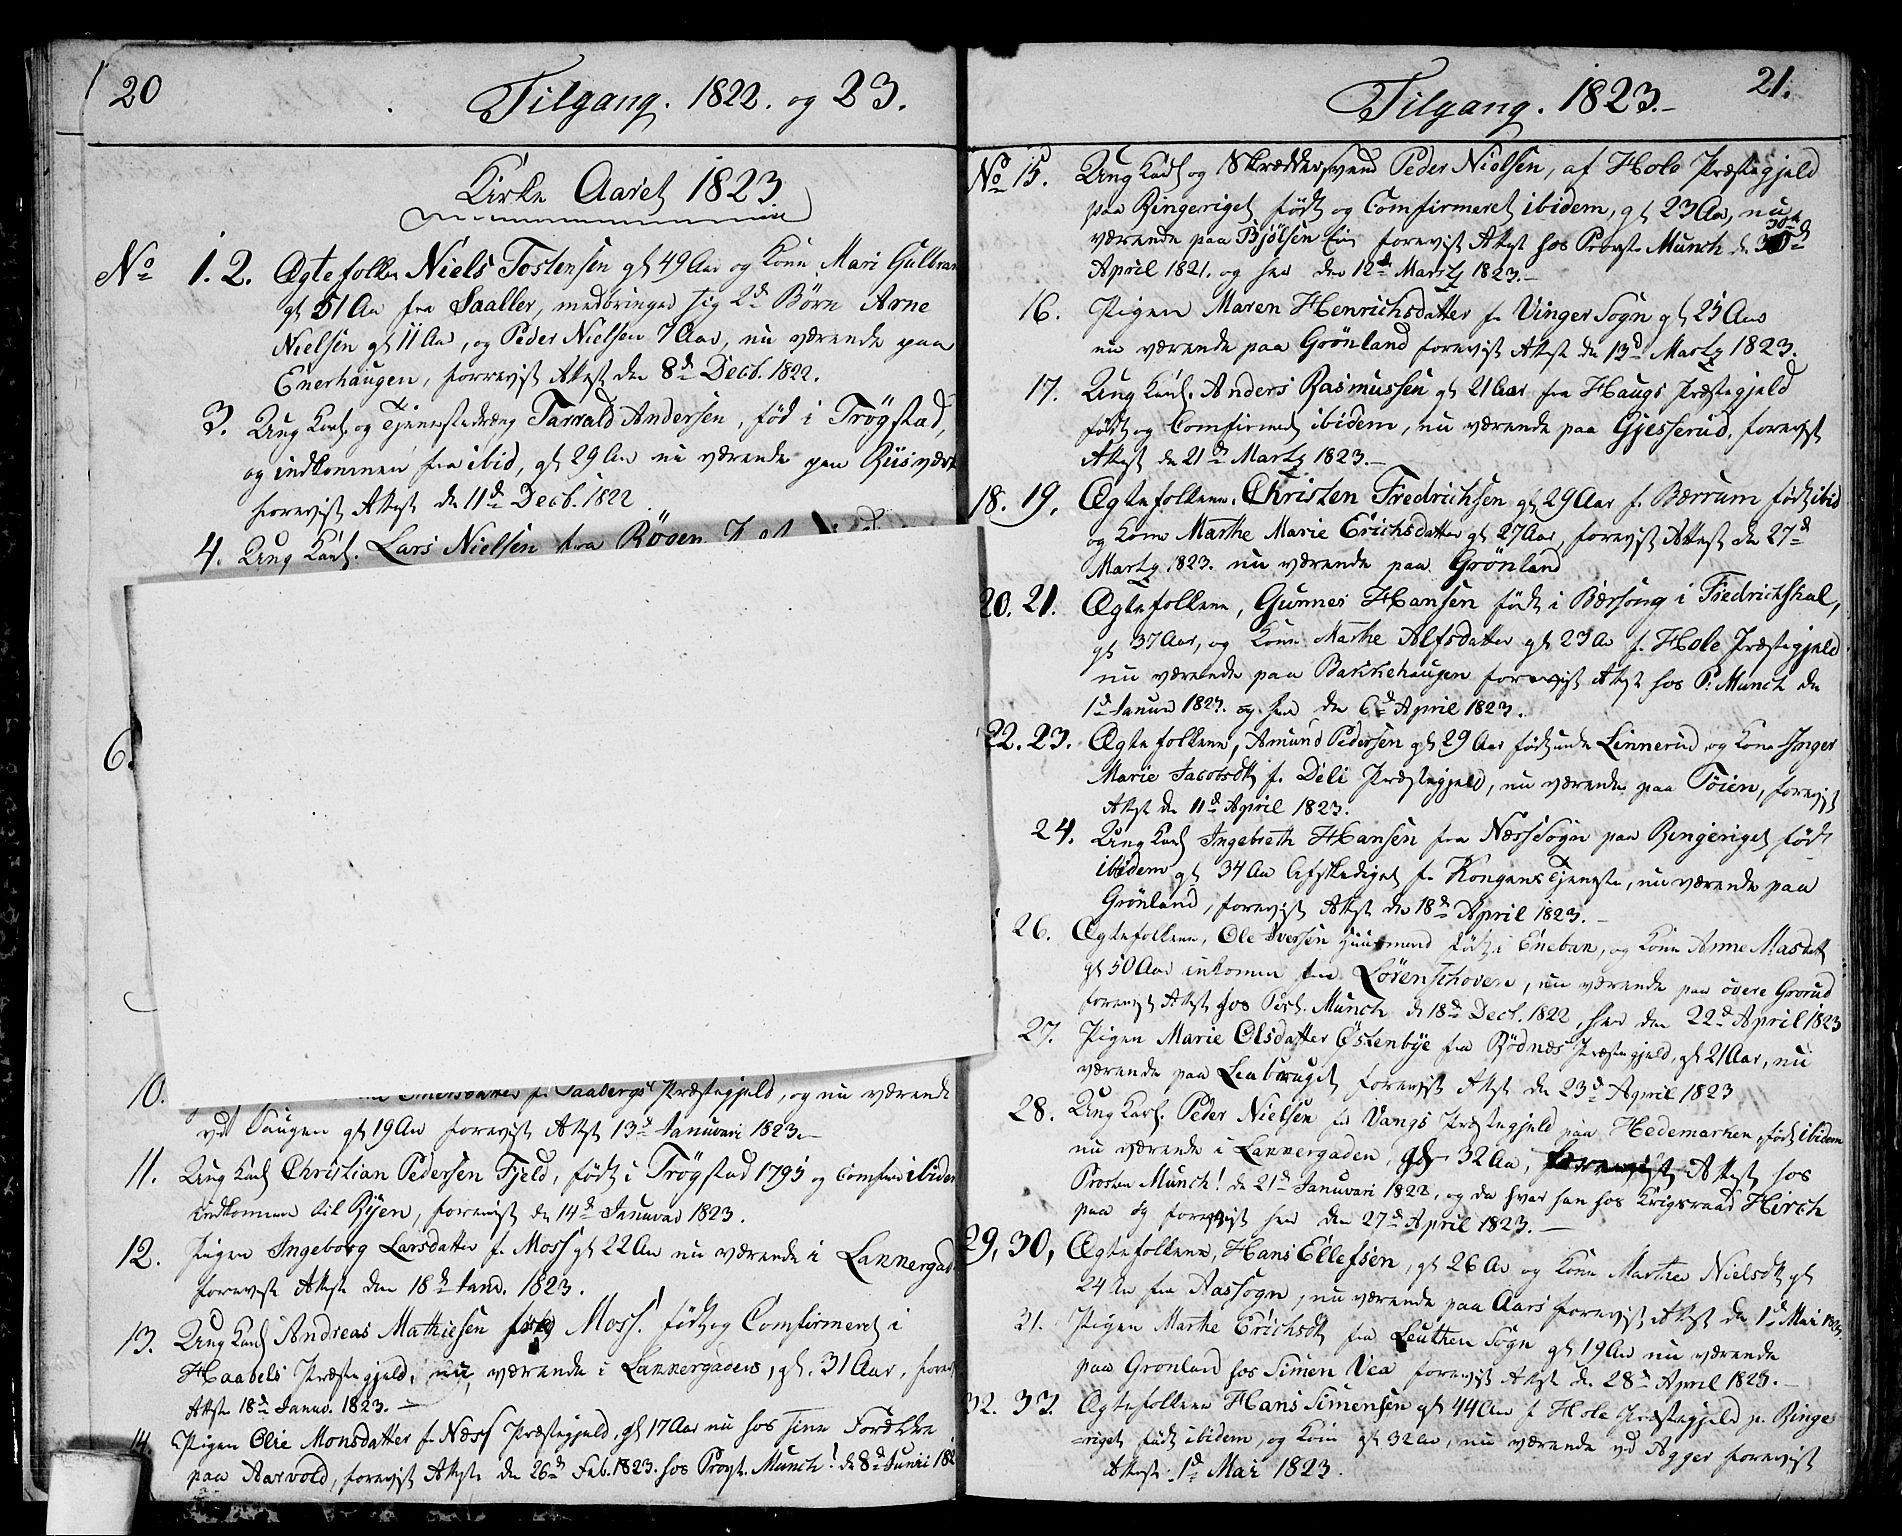 20
Tilgang. 1822. og 23.
Kirke Aaret 1823
No 1. 2. Ægtefolkene Niels Tostensen gl 49 Aar og Kone Mari Gulbran
gl 51 Aar fra Saaller, medbringer sig 2de Börn Arne
Nielsen gl 11 Aar, og Peder Nielsen 7 Aar, nu værende paa
Enerhaugen, forevist Attest den 8de Decb. 1822.
3. Ung Karl og Tjenestedreng Tarrald Andersen, föd i Trögstad,
og indkommen fra ibid, gl 29 Aar nu værende paa Riisværk
forevist Attest den 11de Decb. 1822
4. Ung Karl. Lars Nielsen fra Röden
6.
10. f. Faabergs Præstegjeld, og nu værende
ved Haugen gl 19 Aar forevist Attest 13de Januari 1823.
11. Ung Karl Christian Pedersen Fjeld, födt i Trögstad 1795 og Comfirm ibidem
indkommen til Ryen, forevist den 14de Januar 1823.
12. Pigen Ingeborg Larsdatter f. Moss gl 22 Aar nu værende i Lannergad
forevist Attest den 18de Janu. 1823.
13. Ung Karl Andreas Mathiesen Moss. födt og Comfirmeret i
Haabels Præstegjeld, nu værende i Lannergadens, gl. 31 Aar, forev
Attest 18de Janu. 1823.
14. Pigen Olie Monsdatter f. Næss Præstegjeld, gl 17 Aar nu hos sine Forældre
paa Aarvold, forevist Attest den 26de Feb. 1823. hos Provst. Munch! de 8de Junii 182
21.
Tilgang. 1823.
No 15. Ung Karl og Skrædersvend Peder Nielsen, af Hole Præstegjeld
paa Ringeriget födt og Comfirmeret ibidem, gl 23 Aar, nu
værende paa Bjölsen Eie forevist Attest hos Provst Munch d. 30de
April 1821. og her den 12de Martz 1823.
16. Pigen Maren Henrichsdatter f. Vinger Sogn gl 25 Aar
nu værende paa Grönland forevist Attest den 13de Martz 1823.
17. Ung Karl. Anders Rasmussen gl 21 Aar fra Haugs Præstegjeld
födt og Comfirmeret ibidem, nu værende paa Gjesserud. forevist
Attest den 21de Martz 1823.
18. 19. Ægtefolkene. Christen Fredrichsen gl 29 Aar f. Bærrum födt ibid
og Kone Marthe Marie Erichsdatter gl 27 Aar, forevist Attest den 27de
Martz 1823. nu værende paa Grönland
20. 21. Ægtefolkene, Gunnes Hansen födt i Bersong i Fredrichshal,
gl 37 Aar, og Kone Marthe Alfsdatter gl 23 Aar f. Hole Præstegjeld
nu værende paa Bakkehaugen forevist Attest hos P. Munch den
1de Januar 1823. og her den 6de April 1823.
22. 23. Ægtefolkene, Amund Pedersen gl 29 Aar födt under Linnerud og Kone Inger
Marie Jacobsdt f. Deli Præstegjeld, nu værende paa Töien, forevist
Attest den 11de April 1823.
24. Ung Karl Ingebreth Hansen fra Næss Sogn paa Ringeriget födt
ibidem gl 34 Aar Afskediget f. Kongens Tjeneste, nu værende paa
Grönland, forevist Attest den 18de April 1823.
26. Ægtefolkene, Ole Iversen Huusmand födt i Eneban, og Kone Anne Masdatt
gl 50 Aar inkomen fra Lörenshoven, nu værende paa övere Grorud
forevist Attest hos Prost. Munch de 18de Dect. 1822, her den 22de April 1823
27. Pigen Marie Olsdatter Östenbye fra Rödnæs Præstegjeld, gl 21 Aar, nu
værende paa Leabruget forevist Attest den 23de April 1823
28. Ung Karl. Peder Nielsen fra Vangs Præstegjeld paa Hedemarken, födt ibidem
nu værende i Lannergaden, gl 32 Aar, forevist Attest hos
Prosten Munch! de 21de Januari 1822, og da hvar han hos Krigsraad Hirch
paa og forevist her den 27de April 1823.
29, 30, Ægtefolkene, Hans Ellefsen, gl 26 Aar og Kone Marthe Nielsdt gl
24 Aar fra Aassogn, nu værende paa Aars forevist Attest den 1de Mai 1823
31. Pigen Marthe Erichsdt fra Leuthen Sogn gl 19 Aar nu værende
paa Grönland hos Simen Vea forevist Attest de. 28de April 1823.
32. 33. Ægtefolkene Hans Simensen gl 44 Aar f. Hole Præstegjeld p. Ringe-
=riget födt ibidem, og Kone gl 32 Aar, nu værende ved Agger forevist
Attest. 1de Mai 1823.